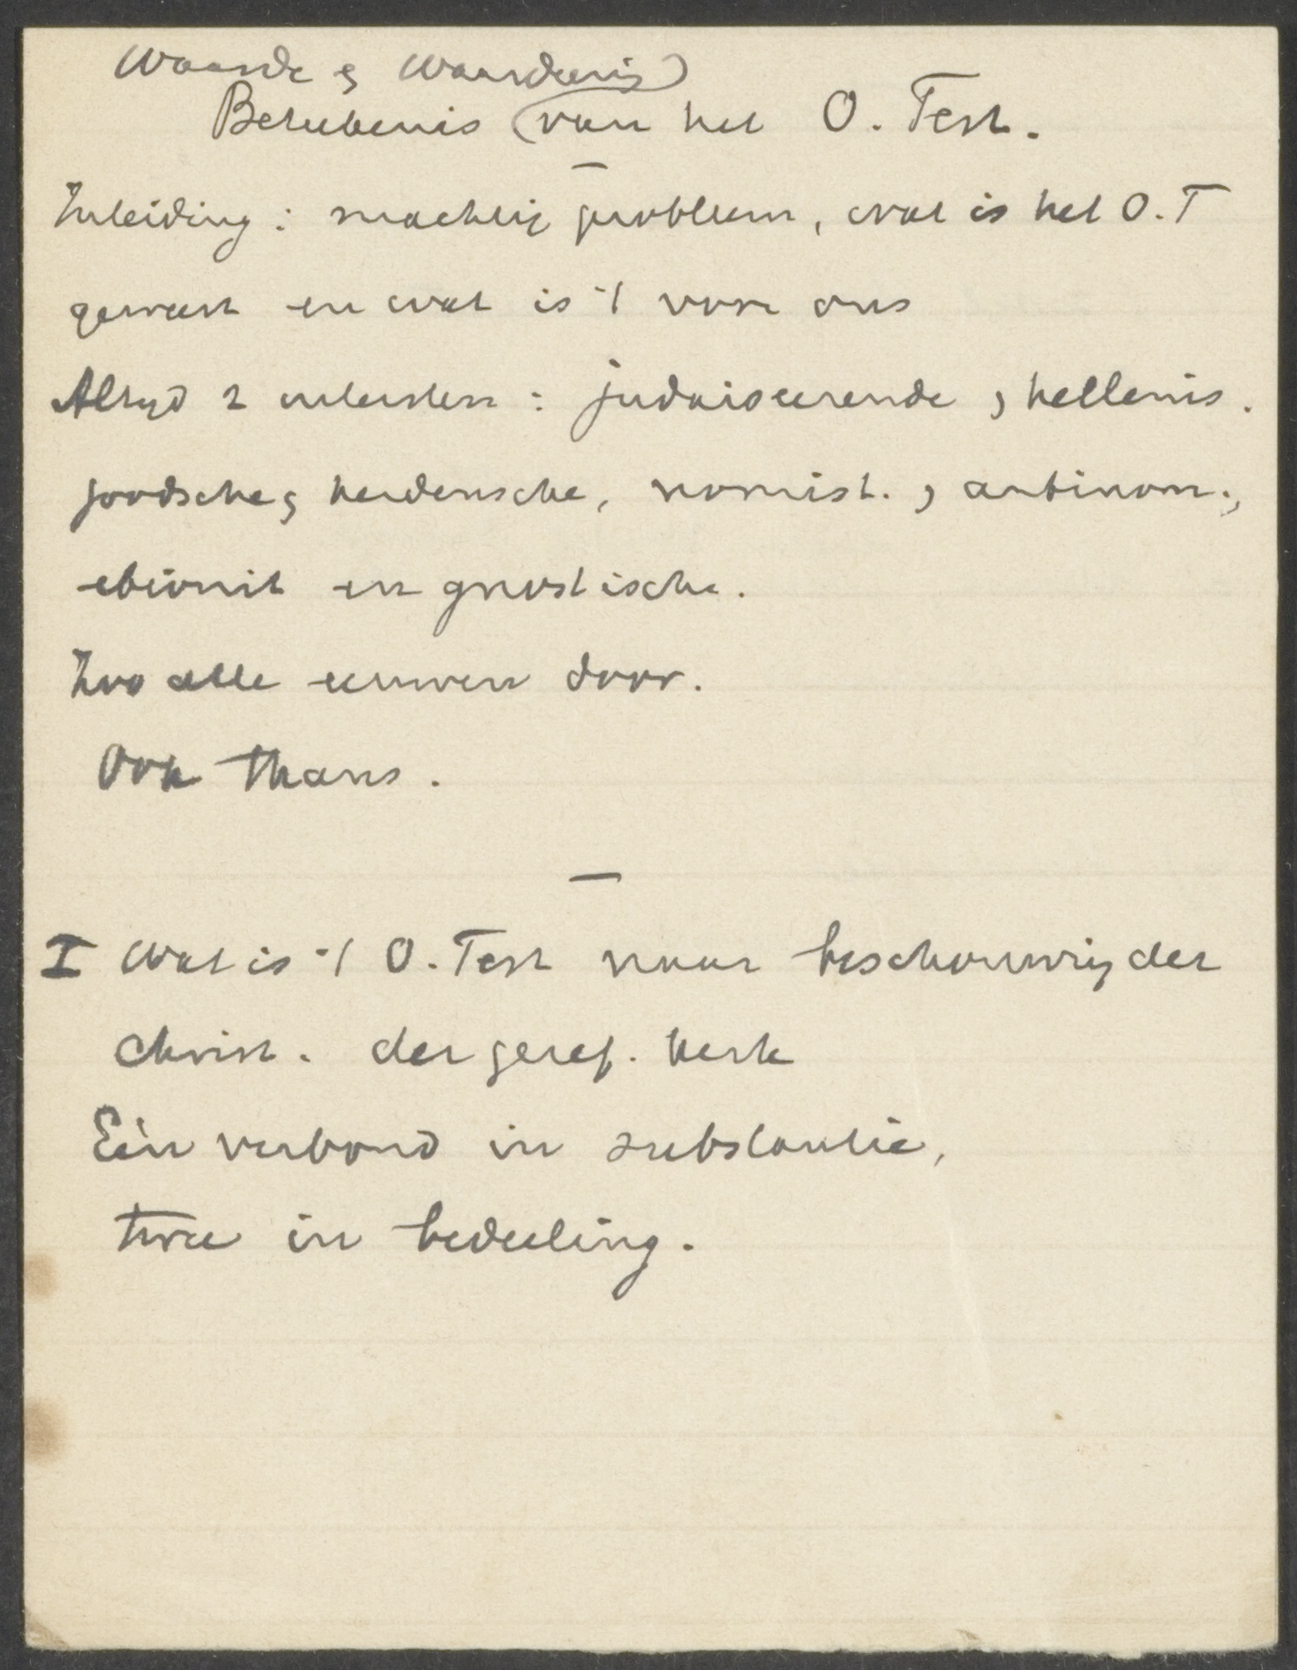 Waarde & Waardeering
Betekenis van het O. Test.
Inleiding: machtig probleem, wat is het O.T
geweest en wat is 't voor ons
Altyd 2 uitersten: judaiseerende, hellenis.
joodsche & heidensche, nomist., antinom.,
ebionit en gnostische.
Zoo alle eeuwen door.
Ook thans.
I Wat is 't O. Test naar beschouwing der
Christ. der geref. kerk
Eén verbond in substantie,
twee in bedeeling.